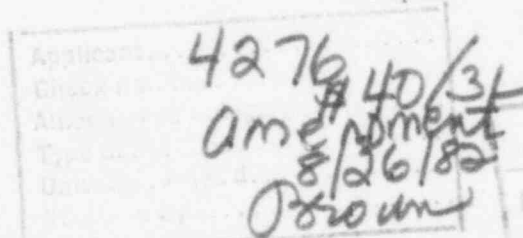 Applicant
Check No.
Amount
Type
4276
$40/31
amendment
8/26/82
Brown